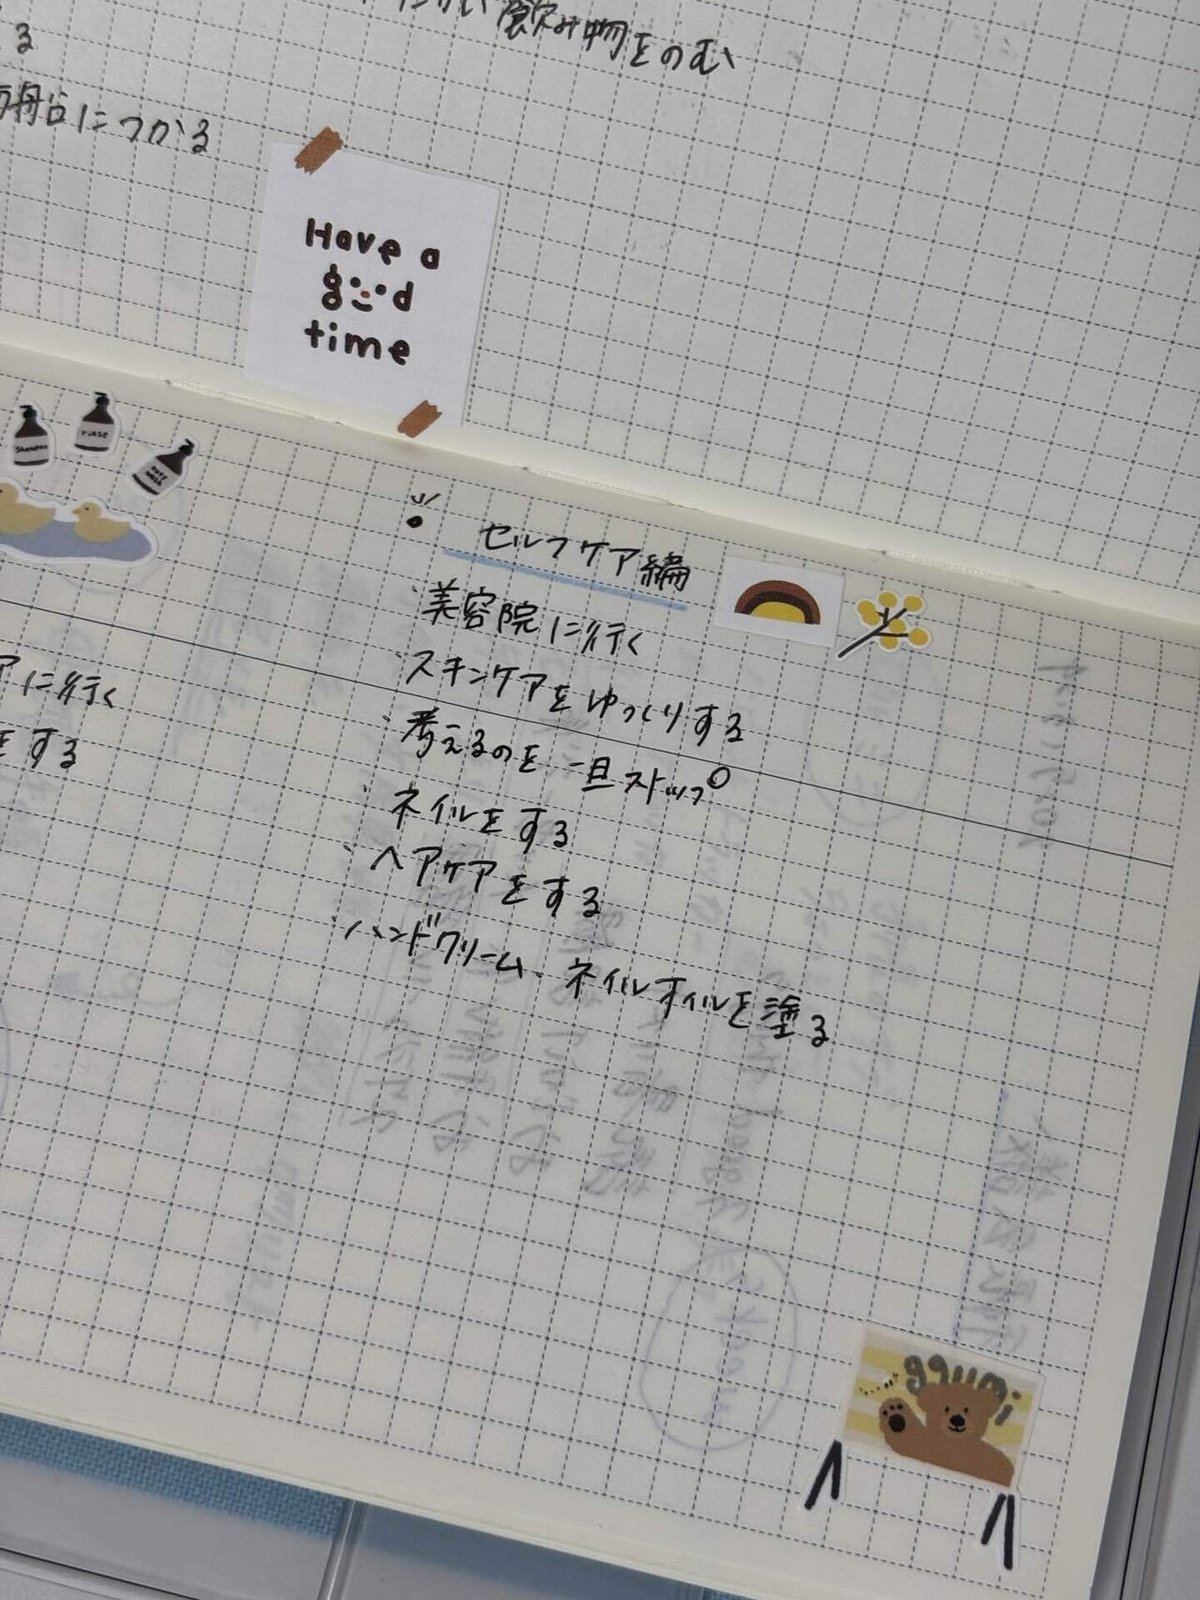 飲み物をのむ
る
につかる
Have a
good
time
shampoo
rinse
body
wash
セルフケア編
・美容院に行く
・スキンケアをゆっくりする
・考えるのを一旦ストップ
・ネイルをする
・ヘアケアをする
・ハンドクリーム、ネイルオイルを塗る
アに行く
をする
ggumi